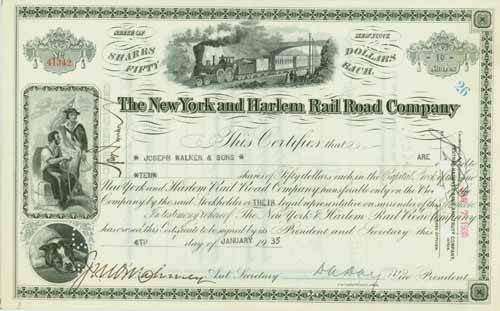 STATE OF NEW YORK
SHARES DOLLARS
FIFTY EACH.
No 41342
10
SHARES
26
The New York and Harlem Rail Road Company
This Certifies that
JOSEPH WALKER & SONS ARE
*TEN* shares of Fifty dollars each, in the Capital Stock of the
New York and Harlem Rail Road Company transferable only on the Books of the
Company by the said Stockholder or THEIR legal representative on surrender of this
In testimony whereof The New York & Harlem Rail Road Company
has caused this Certificate to be signed by its President and Secretary this
4TH day of JANUARY 1935
Asst Secretary Vice President